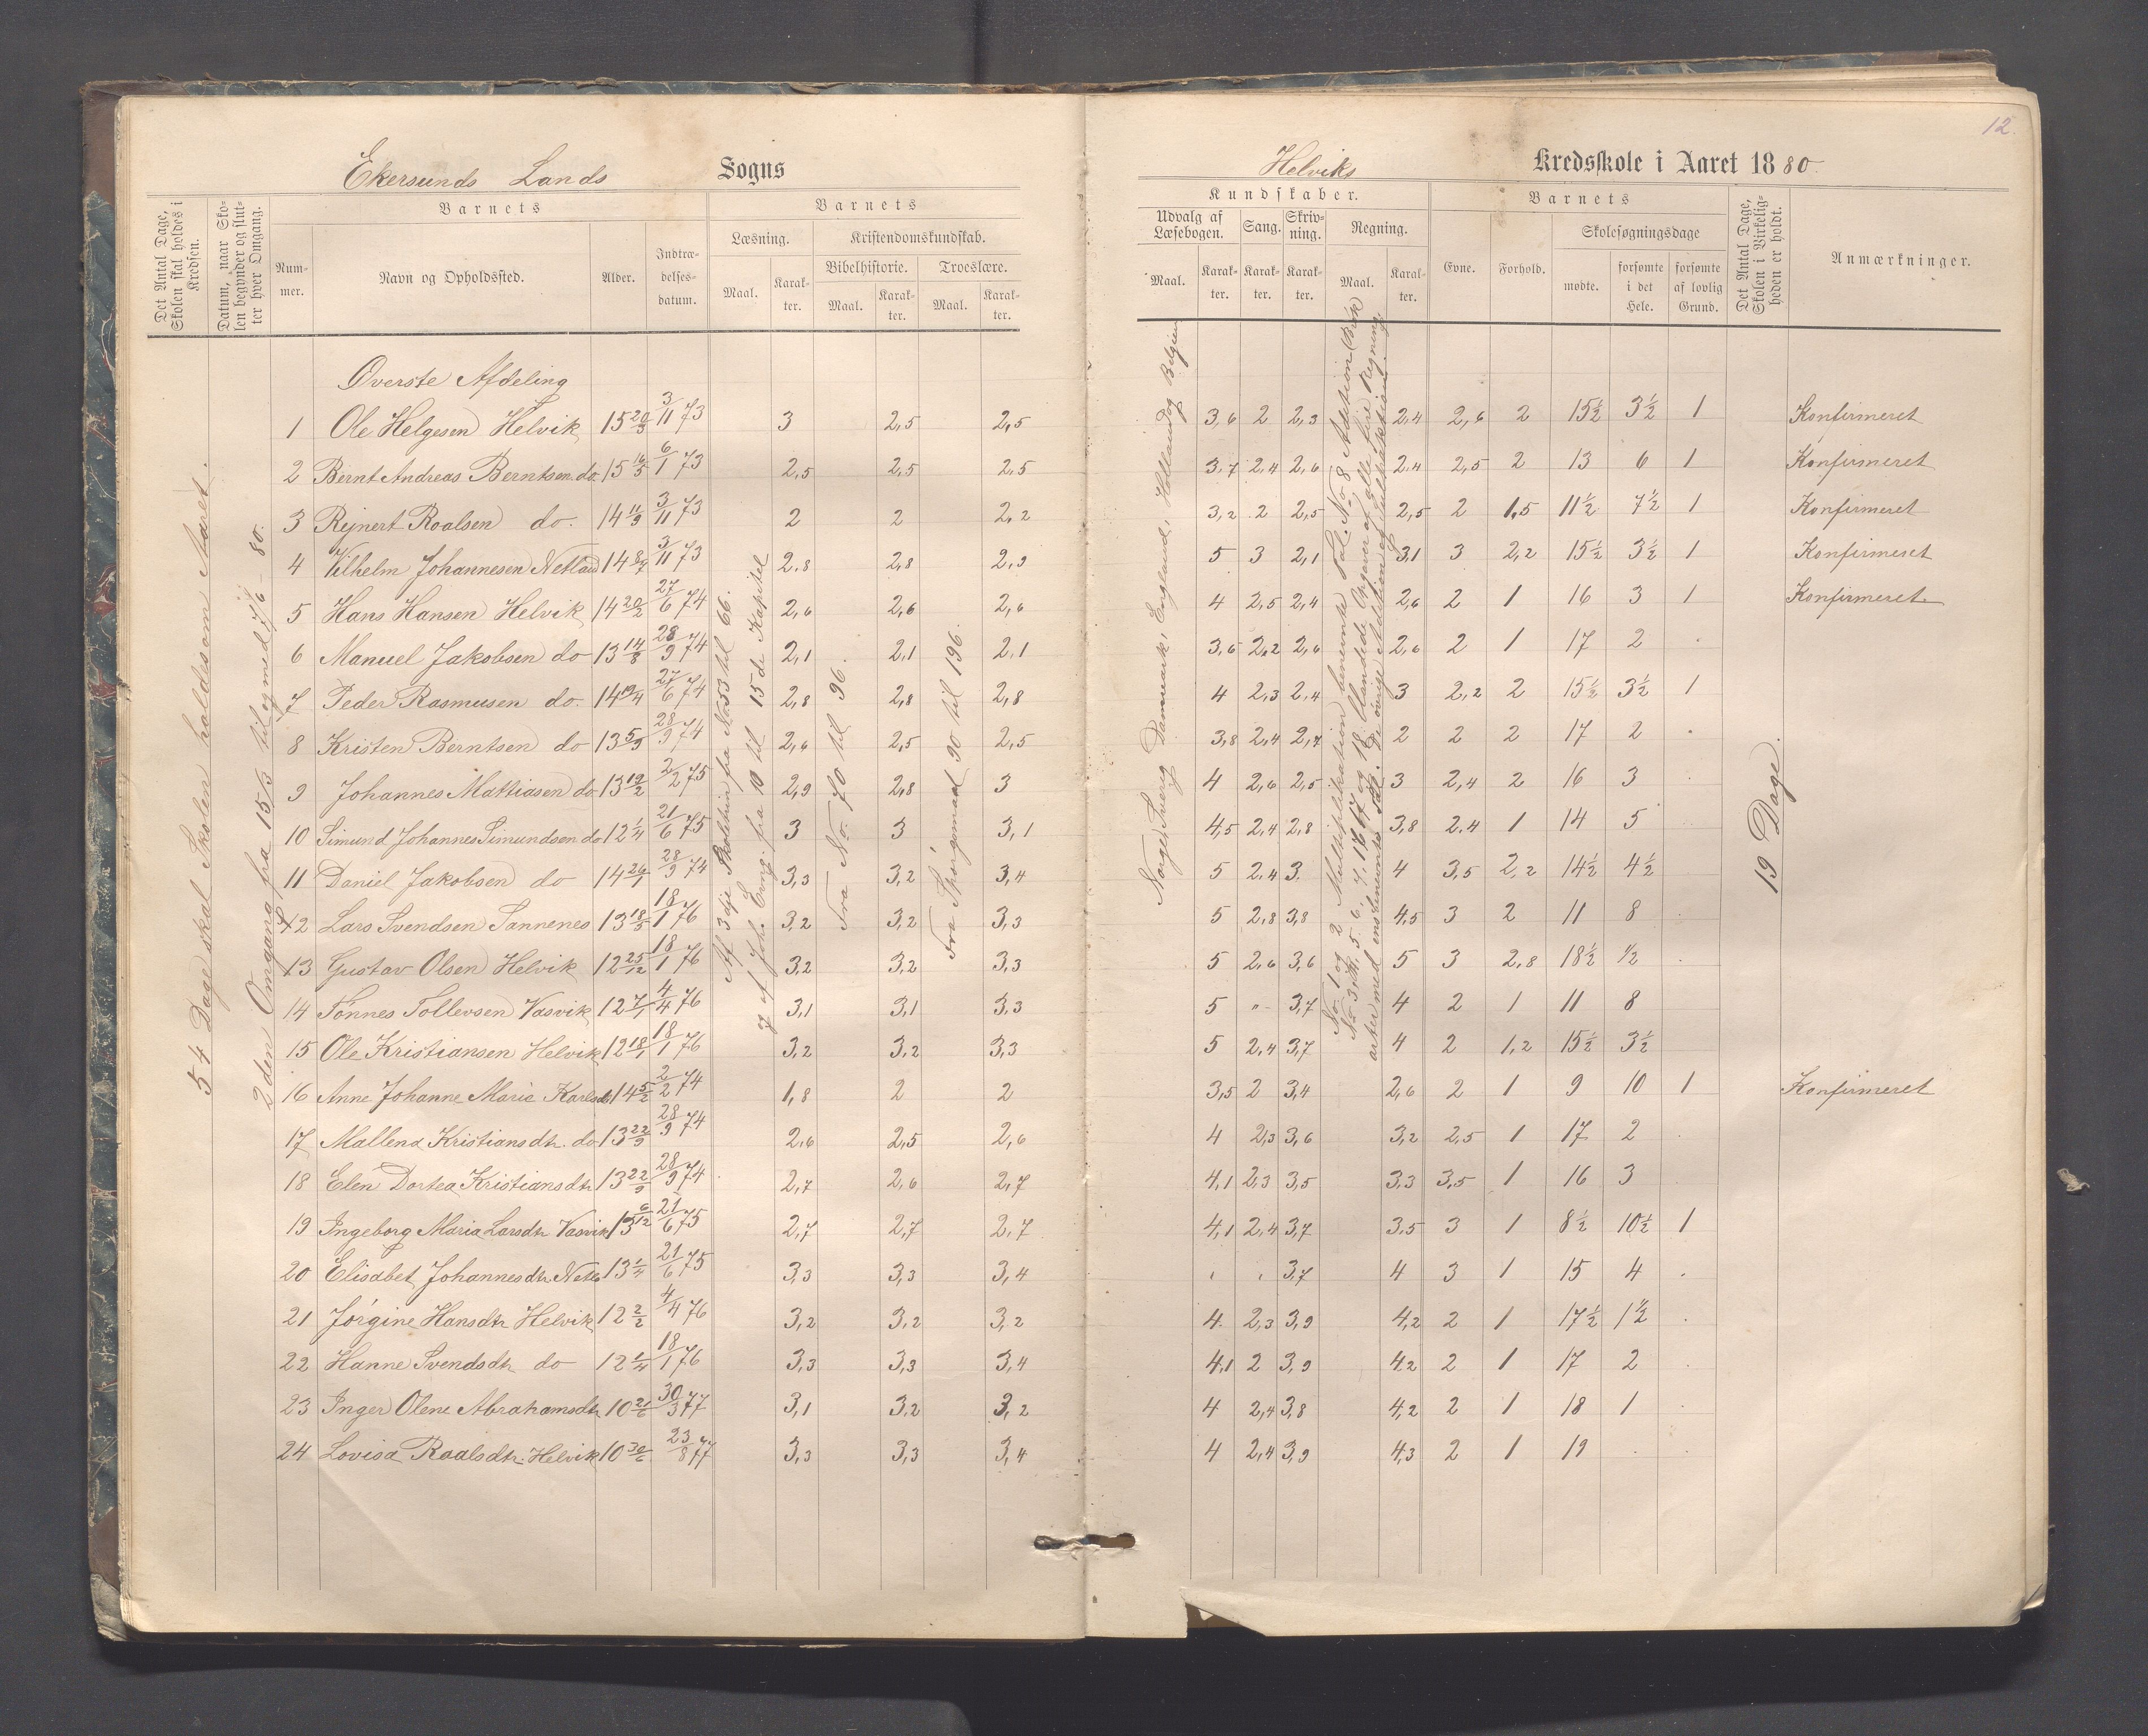 12.
Ekersunds Lands Sogns
Helviks Kredsskole i Aaret 1880
Det Antal Dage, Skolen skal holdes i Kredsen.
Datum, naar Skolen begynder og slutter hver Omgang.
Barnets
Nummer.
Navn og Opholdssted.
Alder.
Indtrædelsesdatum.
Barnets
Læsning.
Maal.
Karakter.
Kristendomskundskab.
Bibelhistorie.
Maal.
Karakter.
Troeslære.
Maal.
Karakter.
Kundskaber.
Udvalg af Læsebogen.
Maal.
Karakter.
Sang.
Karakter.
Skrivning.
Karakter.
Regning.
Maal.
Karakter.
Barnets
Evne.
Forhold.
Skolesøgningsdage
mødte.
forsømte i det Hele.
forsømte af lovlig Grund.
Det Antal Dage, Skolen i Virkeligheden er holdt.
Anmærkninger.
54 Dage skal Skolen holdes om Aaret.
2den Omgang fra 15/5 til og med 7/6 - 80.
Af 3die Skoletrin fra No. 53 til 66.
og af Joh. Evng. fra 10 til 15de Kapitel
Fra No. 70 til 96.
Fra Spørgsmaal 90 til 196.
Norge, Sverig Danmark, England, Holland og Belgien
No. 1 og 2 Multiplikation benevnte Tal. No 8 Addition (Brøk
arter med ensbenevnte Tal. De øvrige Addition af Subtraktion.
19 Dage.
Overste Afdeling
1 Ole Helgesen Helvik 15 20/3 3/11 73 3 2,5 2,5 3,6 2 2,3 2,4 2,6 2 15½ 3½ 1 Konfirmeret
2 Bernt Andreas Berntsen do. 15 16/5 6/1 73 2,5 2,5 2,5 3,7 2,4 2,6 2,4 2,5 2 13 6 1 Konfirmeret
3 Rejnert Roalsen do. 14 11/9 3/11 73 2 2 2,2 3,2 2 2,5 2,5 2 1,5 11½ 7½ 1 Konfirmeret
4 Vilhelm Johannesen Netland 14 8/7 3/11 73 2,8 2,8 2,9 5 3 2,1 3,1 3 2,2 15½ 3½ 1 Konfirmeret
5 Hans Hansen Helvik 14 20/2 27/6 74 2,6 2,6 2,6 4 2,5 2,4 2,6 2 1 16 3 1 Konfirmeret
6 Manuel Jakobsen do 13 14/8 28/9 74 2,1 2,1 2,1 3,6 2,2 2,6 2,6 2 1 17 2 .
7 Peder Rasmusen do. 14 19/4 27/6 74 2,8 2,8 2,8 4 2,3 2,4 3 2,2 2 15½ 3½ 1
8 Kristen Berntsen do 13 5/9 28/9 74 2,6 2,5 2,5 3,8 2,4 2,7 2 2 2 17 2 .
9 Johannes Mattiasen do 13 19/2 2/2 75 2,9 2,8 3 4 2,6 2,5 3 2,4 2 16 3
10 Simund Johannes Simundsen do 12 1/4 21/6 75 3 3 3,1 4,5 2,4 2,8 3,8 2,4 1 14 5
11 Daniel Jakobsen do 14 26/1 28/9 74 3,3 3,2 3,4 5 2,4 3. 4 3,5 2,2 14½ 4½
12 Lars Svendsen Sannenes 13 18/5 18/1 76 3,2 3,2 3,3 5 2,8 3,8 4,5 3 2 11 8
13 Gustav Olsen Helvik 12 25/12 18/1 76 3,2 3,2 3,3 5 2,6 3,6 5 3 2,8 18½ ½
14 Tønnes Tollevsen Vasvik 12 7/1 4/4 76 3,1 3,1 3,3 5 " 3,7 4 2 1 11 8
15 Ole Kristiansen Helvik 12 18/1 18/1 76 3,2 3,2 3,3 5 2,4 3,7 4 2 1,2 15½ 3½
16 Anne Johanne Marie Karlsdt 14 5/2 2/2 74 1,8 2 2 3,5 2 3,4 2,6 2 1 9 10 1 Konfirmeret
17 Mallena Kristiansdtr. do 13 22/9 28/9 74 2,6 2,5 2,6 4 2,3 3,6 3,2 2,5 1 17 2
18 Elen Dortea Kristiansdtr 13 22/9 28/9 74 2,7 2,6 2,7 4,1 2,3 3,5 3,3 3,5 1 16 3
19 Ingeborg Maria Larsdtr Vasvik 13 6/12 21/6 75 2,7 2,7 2,7 4,1 2,4 3,7 3,5 3 1 8½ 10½ 1
20 Elisabet Johannesdtr Netl. 13 1/4 21/6 75 3,3 3,3 3,4 3,7 4 3 1 15 4 .
21 Jørgine Hansdtr Helvik 12 2/2 4/4 76 3,2 3,2 3,2 4. 2,3 3,9 4,2 2 1 17½ 1½ .
22 Hanne Svendsdtr do 12 1/4 18/1 76 3,3 3,3 3,4 4,1 2 3,9 4,2 2 1 17 2 .
23 Inger Olene Abrahamsdtr 10 21/6 30/3 77 3,1 3,2 3,2 4 2,4 3,8 4,2 2 1 18 1 .
24 Lovisa Roalsdtr. Helvik 10 30/6 23/8 77 3,3 3,3 3,4 4 2,4 3,9 4,3 2 1 19 . .